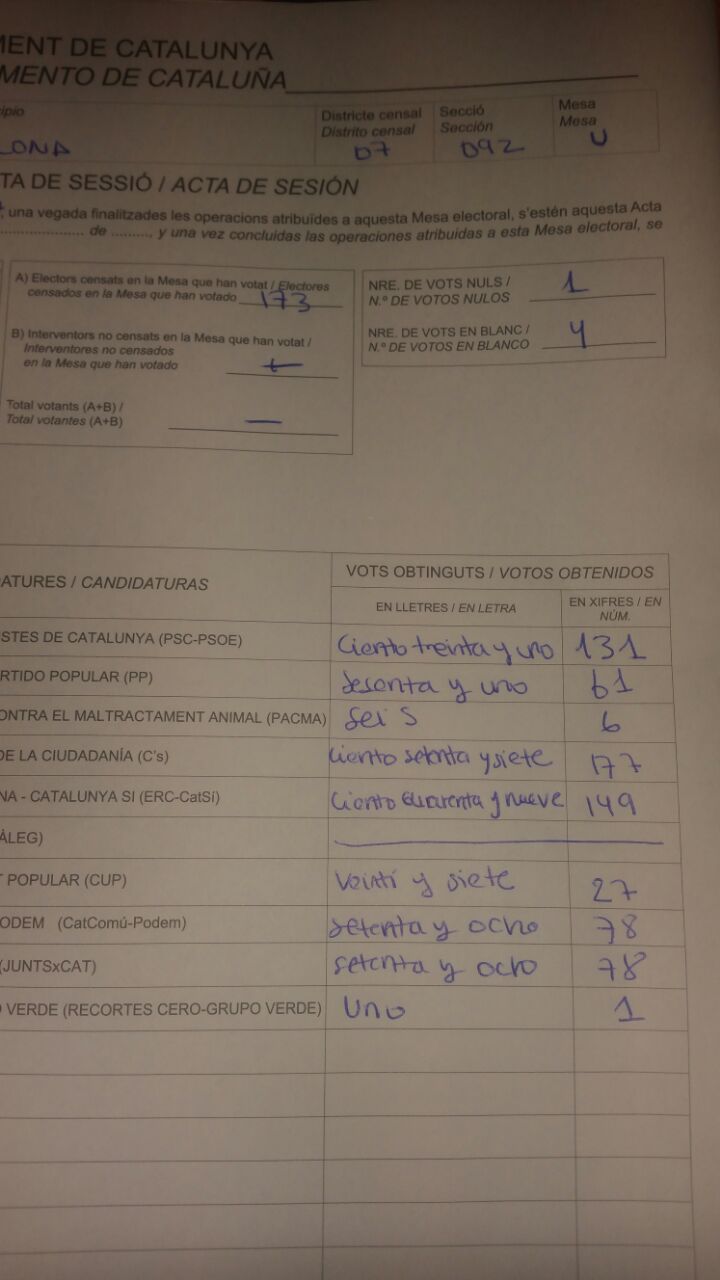 MENT DE CATALUNYA
MENTO DE CATALUÑA
cipio
LONA
Districte censal
Distrito censal
07
Secció
Sección
092
Mesa
Mesa
U
TA DE SESSIÓ / ACTA DE SESIÓN
, una vegada finalitzades les operacions atribuïdes a aquesta Mesa electoral, s'estén aquesta Acta
..................... de .......... y una vez concluidas las operaciones atribuidas a esta Mesa electoral, se
A) Electors censats en la Mesa que han votat / Electores
censados en la Mesa que han votado 173
B) Interventors no censats en la Mesa que han votat /
Interventores no censados
en la Mesa que han votado
Total votants (A+B) /
Total votantes (A+B) —
NRE. DE VOTS NULS /
N.º DE VOTOS NULOS 1
NRE. DE VOTS EN BLANC /
N.º DE VOTOS EN BLANCO 4
DATURES / CANDIDATURAS
VOTS OBTINGUTS / VOTOS OBTENIDOS
EN LLETRES / EN LETRA
EN XIFRES / EN
NÚM.
STES DE CATALUNYA (PSC-PSOE) Ciento treinta y uno 131
RTIDO POPULAR (PP) sesenta y uno 61
ONTRA EL MALTRACTAMENT ANIMAL (PACMA) seis 6
DE LA CIUDADANÍA (C's) Ciento setenta y siete 177
NA - CATALUNYA SI (ERC-CatSí) Ciento cuarenta y nueve 149
ÀLEG)
T POPULAR (CUP) Veinti y siete 27
ODEM (CatComú-Podem) setenta y ocho 78
(JUNTSxCAT) setenta y ocho 78
O VERDE (RECORTES CERO-GRUPO VERDE) Uno 1